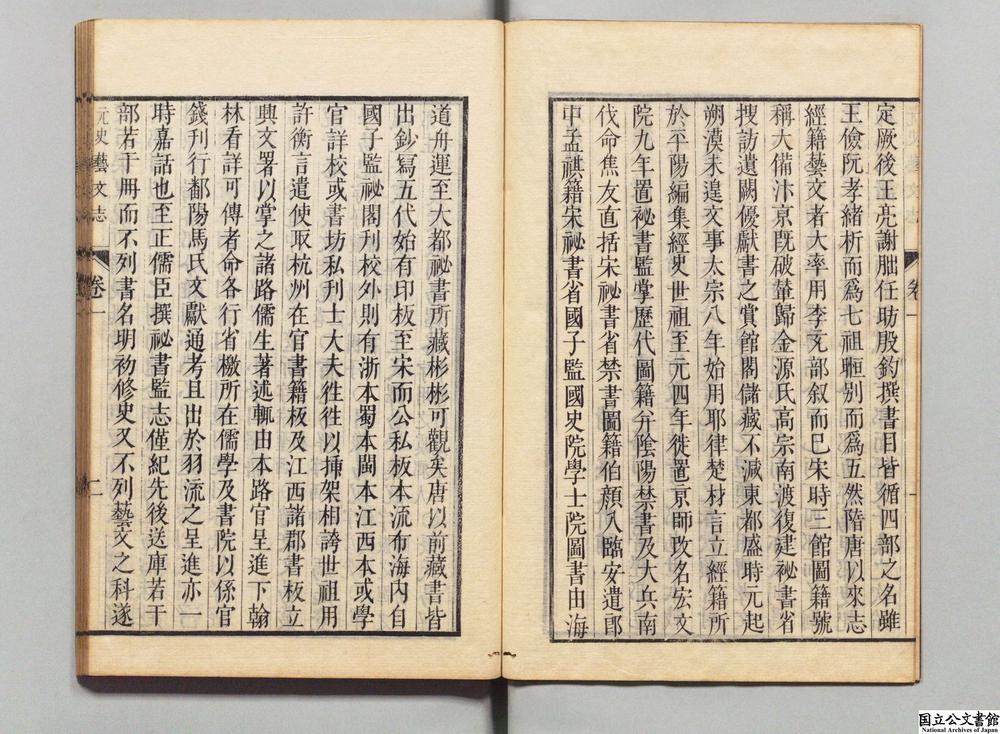 定厥後王亮謝朏任昉殷鈞撰書目皆循四部之名雖
王儉阮孝緒析而爲七祖暅别而爲五然隋唐以來志
經籍藝文者大率用李充部叙而已宋時三館圖籍號
稱大備汴京旣破輦歸金源氏高宗南渡復建祕書省
搜訪遺闕優獻書之賞館閣儲藏不減東都盛時元起
朔漠未遑文事太宗八年始用耶律楚材言立經籍所
於平陽編集經史世祖至元四年徙置京師改名宏文
院九年置祕書監掌歷代圖籍幷陰陽禁書及大兵南
伐命焦友直括宋祕書省禁書圖籍伯顏入臨安遣郎
中孟祺籍宋祕書省國子監國史院學士院圖書由海
卷一
一
道舟運至大都祕書所藏彬彬可觀矣唐以前藏書皆
出鈔寫五代始有印板至宋而公私板本流布海内自
國子監祕閣刊校外則有浙本蜀本閩本江西本或學
官詳校或書坊私刊士大夫往往以揷架相誇世祖用
許衡言遣使取杭州在官書籍板及江西諸郡書板立
興文署以掌之諸路儒生著述輒由本路官呈進下翰
林看詳可傳者命各行省檄所在儒學及書院以係官
錢刊行鄱陽馬氏文獻通考且出於羽流之呈進亦一
時嘉話也至正儒臣撰祕書監志僅紀先後送庫若干
部若干冊而不列書名明初修史又不列藝文之科遂
元史藝文志
卷一
二
国立公文書館
National Archives of Japan